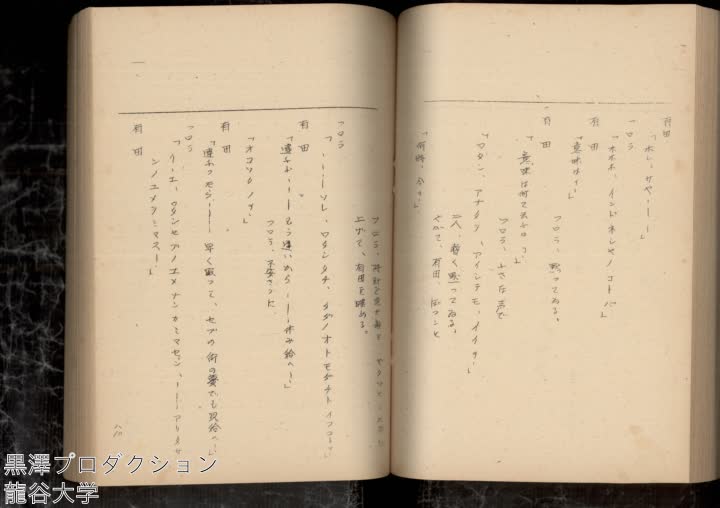 有田
「ホレ、サヤ・・・・」
フロラ
「ホホホ、インドネシヤノコトバ」
有田
「意味は？」
フロラ、黙ってゐる。
有田
「意味は何て云ふの？」
フロラ、小さな声で
「ワタシ、アナタヲ、アイシテモ、イイカ」
二人、暫く黙ってゐる。
やがて、有田、ぽつんと
「何時、から」
フロラ、
上げて、有田を眺める。
フロラ
「・・・・ソレ、ワタシタチ、タダノオトモダチト イフコト？」
有田
「違ふ・・・・もう遅いから・・・・休み給へ」
フロラ、不安さうに
「オコッタノカ」
有田
「違ふったら・・・・早く眠って、セブの街の夢でも見給へ」
フロラ
「イーエ、ワタシセブノユメナンカミマセン、・・・・アリタサ
ンノユメヲミマス・・」
有田
黒澤プロダクション
龍谷大学